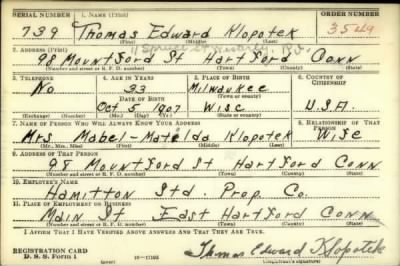 SERIAL NUMBER 1. NAME (Print) ORDER NUMBER
739 Thomas Edward Klopotek 3549
(First) (Middle) (Last)
2. ADDRESS (Print)
98 Mountford St Hartford Conn
(Number and street or R. F. D. number) (Town) (County) (State)
3. TELEPHONE 4. AGE IN YEARS 5. PLACE OF BIRTH 6. COUNTRY OF CITIZENSHIP
No 33 Milwaukee
DATE OF BIRTH (Town or county)
Oct 5 1907 Wisc U.S.A.
(Exchange) (Number) (Mo.) (Day) (Yr.) (State or country)
7. NAME OF PERSON WHO WILL ALWAYS KNOW YOUR ADDRESS 8. RELATIONSHIP OF THAT PERSON
Mrs Mabel-Matilda Klopotek Wife
(Mr., Mrs., Miss) (First) (Middle) (Last)
9. ADDRESS OF THAT PERSON
98 Mountford St Hartford Conn
(Number and street or R. F. D. number) (Town) (County) (State)
10. EMPLOYER'S NAME
Hamitton Std. Prop. Co.
11. PLACE OF EMPLOYMENT OR BUSINESS
Main St East Hartford Conn
(Number and street or R. F. D. number) (Town) (County) (State)
I AFFIRM THAT I HAVE VERIFIED ABOVE ANSWERS AND THAT THEY ARE TRUE.
REGISTRATION CARD
D. S. S. Form 1 Thomas Edward Klopotek
(Registrant's signature)